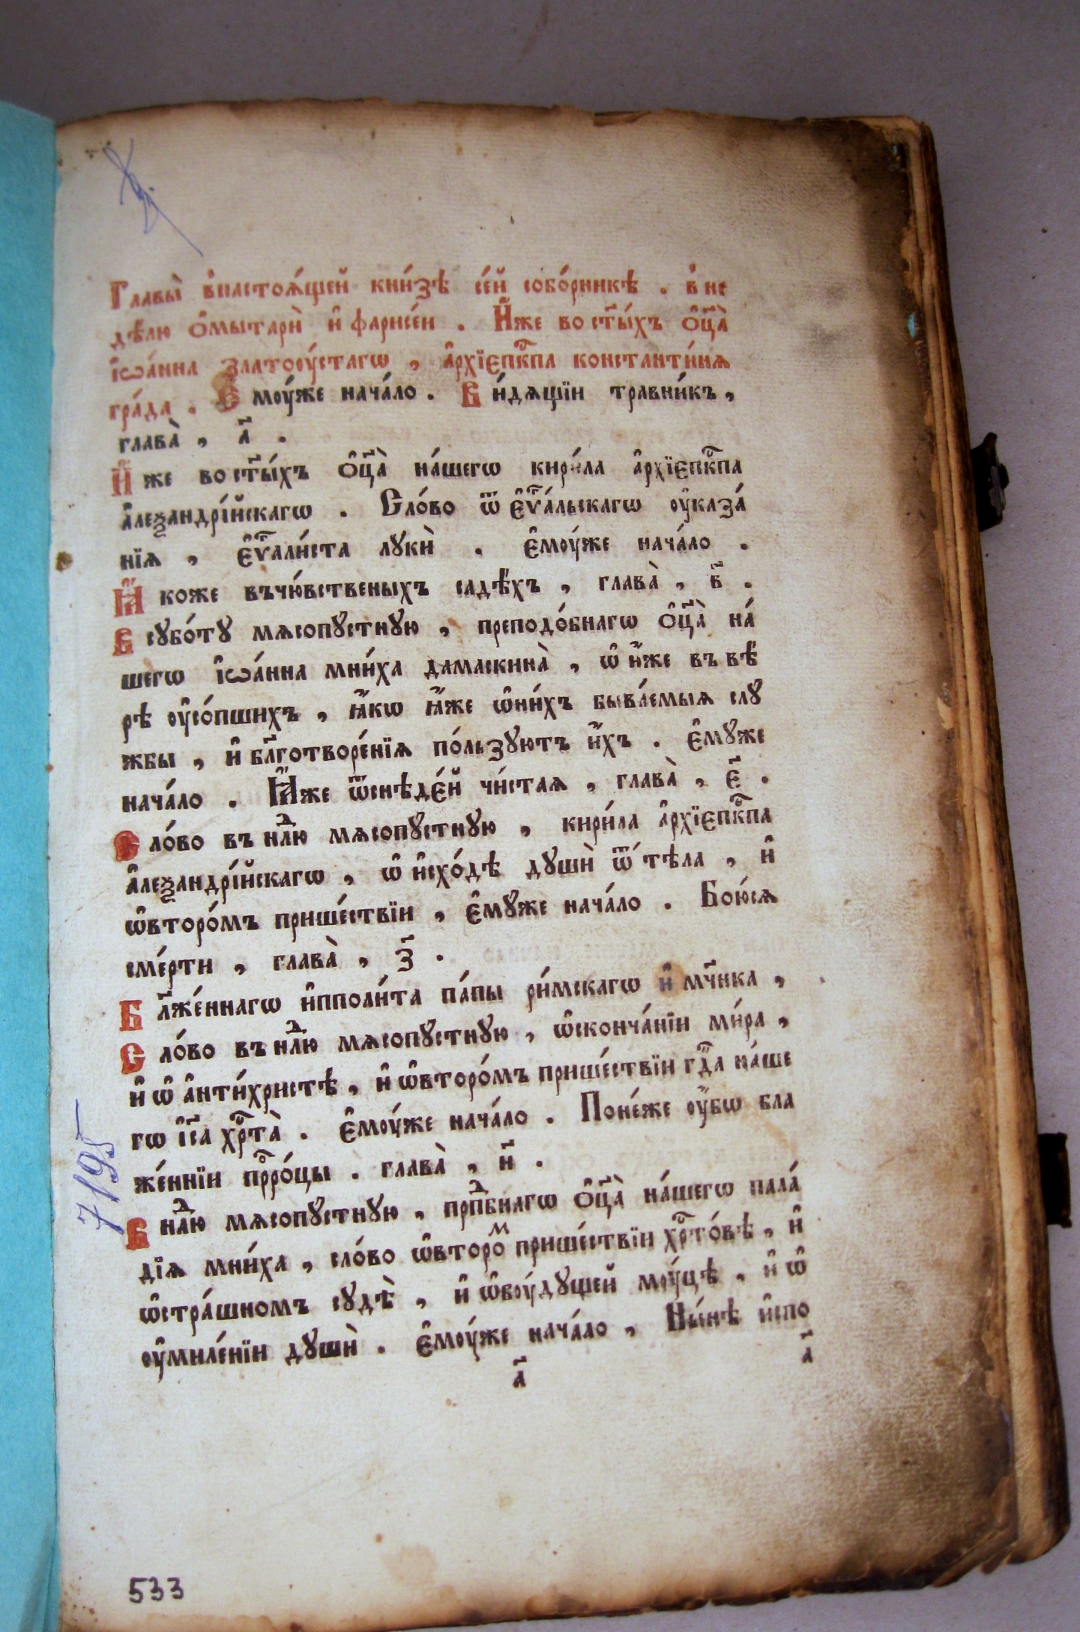 Главы̀ внастоѧ́щей кни́зѣ се́й собо́рникѣ . в не
дѣ́лю ѡ҆мытарѝ и҆ фарисе́и . И҆́же во ст҃ы́хъ ѻ҆ц҃а̀
і҆ѡа́нна златоꙋ́стагѡ , а҆рхїепⷭ҇кпа константи́нѧ
гра́да . Е҆моꙋ́же нача́ло . В и́дѧщїи травни́къ ,
глава̀ , а҃ .
И҆́ же во ст҃ы́хъ ѻ҆ц҃а̀ на́шегѡ кири́ла а҆рхїепⷭ҇кпа
а҆леѯандрі́йскагѡ . Сло́во ѿ є҆ѵⷢ҇а́льскагѡ ᲂу҆каза́
нїѧ , є҆ѵⷢ҇али́ста лꙋкѝ . є҆моꙋ́же нача́ло .
Ꙗ҆́ коже въчю́вственыхъ садѣ́хъ , глава̀ , в҃ .
В сꙋбо́тꙋ мѧсопꙋ́стнꙋю , преподо́бнагѡ ѻ҆ц҃а̀ на́
шегѡ і҆ѡа́нна мни́ха дамаскина̀ , ѡ҆ и҆́же въ вѣ́
рѣ ᲂу҆со́пшихъ , ꙗ҆́кѡ ꙗ҆́же ѡ҆ни́хъ быва́емыѧ слꙋ
жбы , и҆ бл҃готворе́нїѧ по́льзꙋютъ и҆́хъ . є҆мꙋже
нача́ло . Ꙗ҆́же ѿснѣде́й чи́стаѧ , глава̀ , є҃ .
С ло́во въ нⷣлю мѧсопꙋстнꙋю , кири́ла а҆рхїепⷭ҇кпа
а҆леѯандрі́йскагѡ , ѡ҆ и҆схо́дѣ дꙋшѝ ѿ тѣ́ла , и҆
ѡ҆второ́мъ прише́ствїи , є҆мꙋже нача́ло . Бою́сѧ
сме́рти , глава̀ , з҃ .
Б л҃же́ннагѡ и҆пполи́та па́пы ри́мскагѡ и҆ мч҃нка ,
С ло́во въ нⷣлю мѧсопꙋстнꙋю , ѡ҆сконча́нїи ми́ра ,
и҆ ѡ҆ а҆нти́христѣ , и҆ ѡ҆второ́мъ прише́ствїи гдⷭ҇а на́ше
гѡ і҆с҃а хрⷭ҇та̀ . є҆моꙋ́же нача́ло . Поне́же ᲂу҆́бѡ бла
же́ннїи прⷪ҇ро́цы . глава̀ , и҃ .
В нⷣлю мѧсопꙋстнꙋю , прпⷣбнагѡ ѻ҆ц҃а̀ на́шегѡ пала́
дїѧ мни́ха , сло́во ѡ҆второⷨ прише́ствїи хрⷭ҇то́вѣ , и҆
ѡ҆стра́шномъ сꙋдѣ̀ , и҆ ѡ҆боꙋ́дꙋщей моꙋ́цѣ , и҆ ѡ҆
ᲂу҆миле́нїи дꙋшѝ . є҆моꙋ́же нача́ло , Ны́нѣ и҆спо
а҃ а҃
7195
533